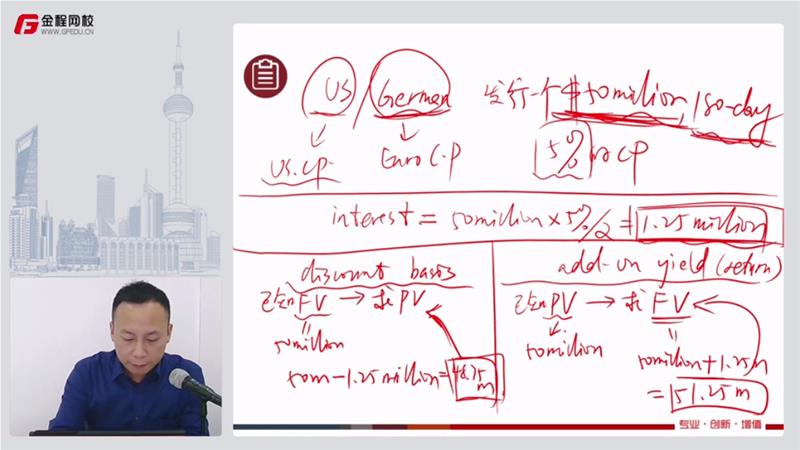 金程网校
WWW.GFEDU.CN
US / German 发行一个 $50 million, 180-day
US.CP. Euro C.P 5% CP
interest = 50 million × 5%/2 = 1.25 million
discount basis
已知 FV → 求 PV
50 million
50m - 1.25 million = 48.75 m
add-on yield (return)
已知 PV → 求 FV
50 million
50 million + 1.25m
= 51.25 m
专业·创新·增值